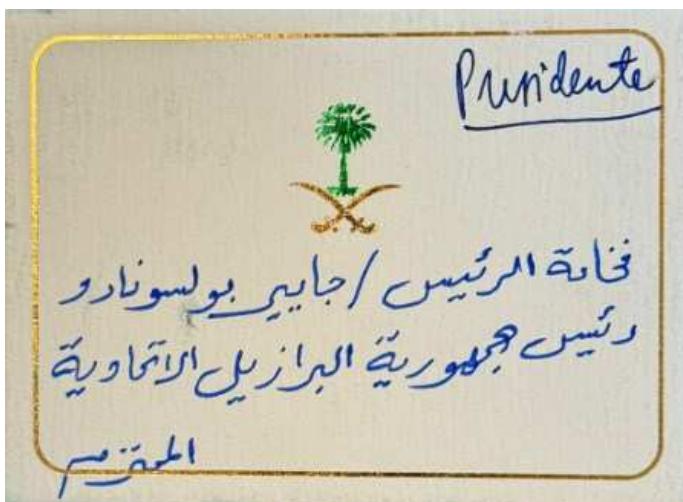 Presidente
فخامة الرئيس / جايير بولسونارو
رئيس جمهورية البرازيل الاتحادية
المحترم